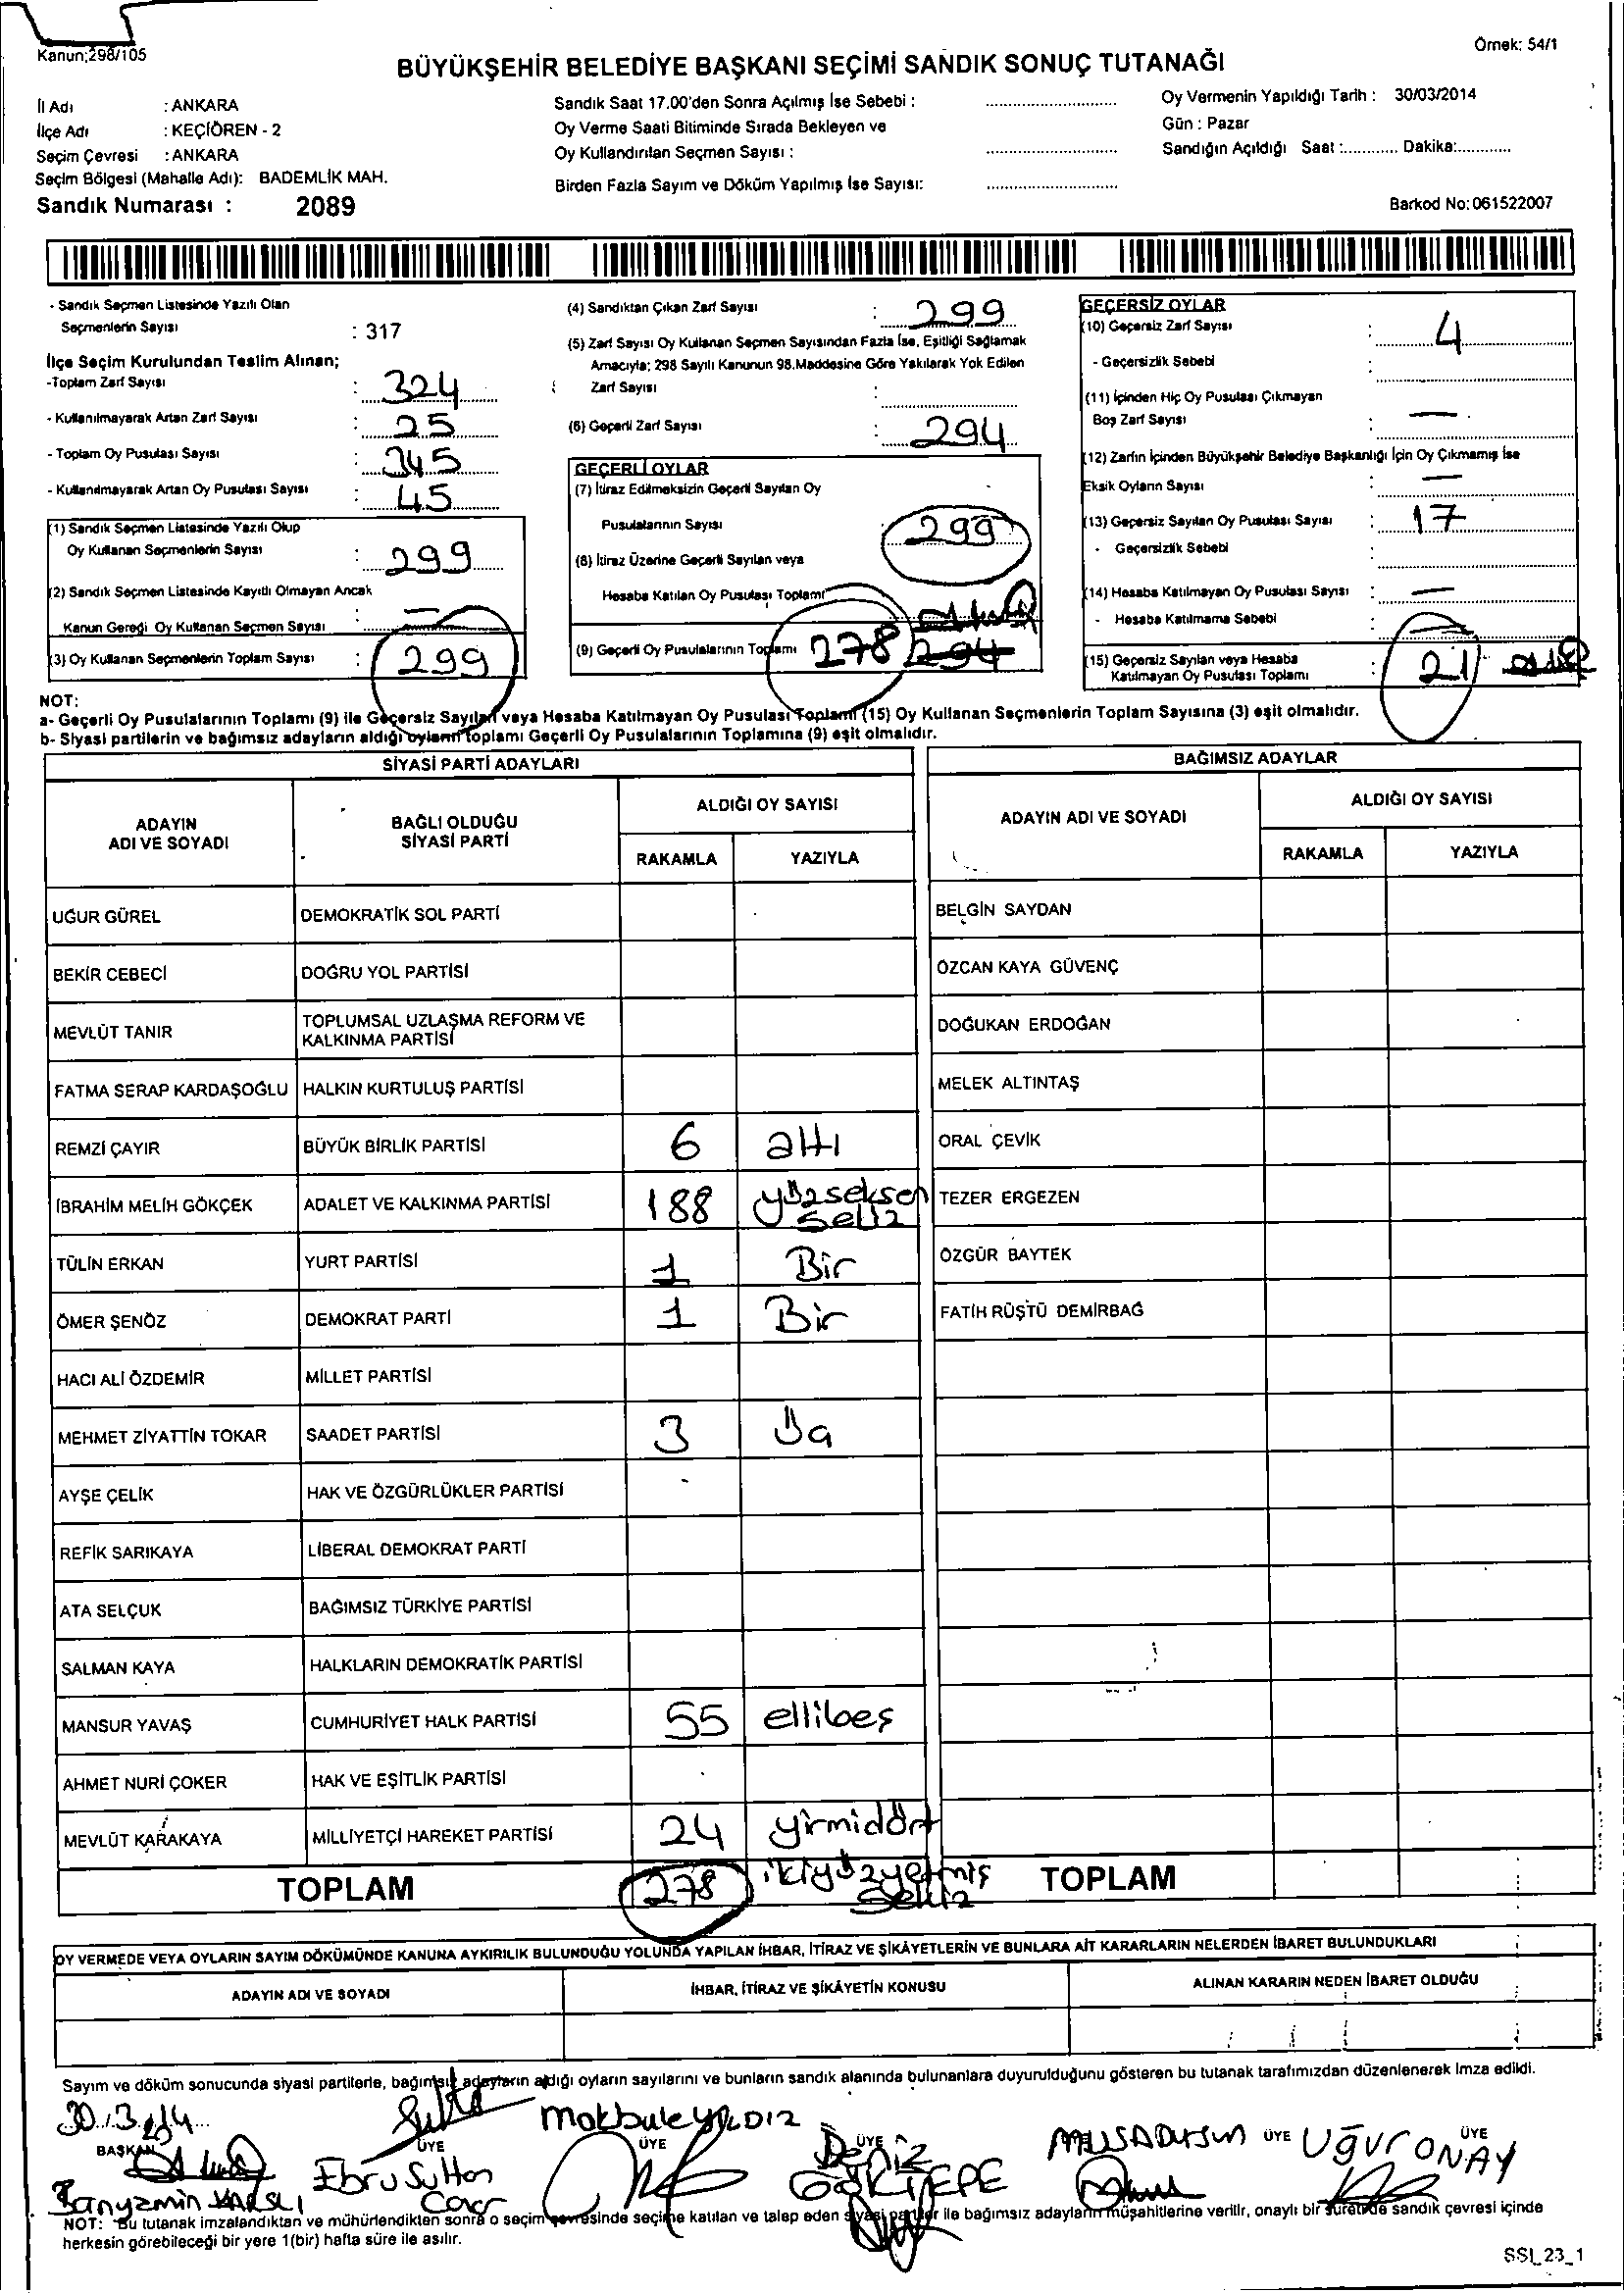 Kanun;298/105
Örnek: 54/1
BÜYÜKŞEHİR BELEDİYE BAŞKANI SEÇİMİ SANDIK SONUÇ TUTANAĞI
İl Adı : ANKARA
İlçe Adı : KEÇİÖREN - 2
Seçim Çevresi : ANKARA
Seçim Bölgesi (Mahalle Adı): BADEMLİK MAH.
Sandık Numarası : 2089
Sandık Saat 17.00'den Sonra Açılmış İse Sebebi :
Oy Verme Saati Bitiminde Sırada Bekleyen ve
Oy Kullandırılan Seçmen Sayısı :
Birden Fazla Sayım ve Döküm Yapılmış İse Sayısı:
Oy Vermenin Yapıldığı Tarih : 30/03/2014
Gün : Pazar
Sandığın Açıldığı Saat :............ Dakika:............
Barkod No: 061522007
- Sandık Seçmen Listesinde Yazılı Olan
Seçmenlerin Sayısı : 317
İlçe Seçim Kurulundan Teslim Alınan;
-Toplam Zarf Sayısı : 324
- Kullanılmayarak Artan Zarf Sayısı : 25
- Toplam Oy Pusulası Sayısı : 345
- Kullanılmayarak Artan Oy Pusulası Sayısı : 45
(1) Sandık Seçmen Listesinde Yazılı Olup
Oy Kullanan Seçmenlerin Sayısı : 299
(2) Sandık Seçmen Listesinde Kayıtlı Olmayan Ancak
Kanun Gereği Oy Kullanan Seçmen Sayısı : —
(3) Oy Kullanan Seçmenlerin Toplam Sayısı : 299
(4) Sandıktan Çıkan Zarf Sayısı : 299
(5) Zarf Sayısı Oy Kullanan Seçmen Sayısından Fazla İse, Eşitliği Sağlamak
Amacıyla; 298 Sayılı Kanunun 98.Maddesine Göre Yakılarak Yok Edilen
Zarf Sayısı :
(6) Geçerli Zarf Sayısı : 294
GEÇERLİ OYLAR
(7) İtiraz Edilmeksizin Geçerli Sayılan Oy
Pusulalarının Sayısı 299
(8) İtiraz Üzerine Geçerli Sayılan veya
Hesaba Katılan Oy Pusulası Toplamı
(9) Geçerli Oy Pusulalarının Toplamı 278 294
GEÇERSİZ OYLAR
(10) Geçersiz Zarf Sayısı : 4
- Geçersizlik Sebebi :
(11) İçinden Hiç Oy Pusulası Çıkmayan
Boş Zarf Sayısı : —
(12) Zarfın İçinden Büyükşehir Belediye Başkanlığı İçin Oy Çıkmamış İse
Eksik Oyların Sayısı : —
(13) Geçersiz Sayılan Oy Pusulası Sayısı : 17
- Geçersizlik Sebebi :
(14) Hesaba Katılmayan Oy Pusulası Sayısı : —
- Hesaba Katılmama Sebebi : —
(15) Geçersiz Sayılan veya Hesaba
Katılmayan Oy Pusulası Toplamı : 21
NOT:
a- Geçerli Oy Pusulalarının Toplamı (9) ile Geçersiz Sayılan veya Hesaba Katılmayan Oy Pusulası Toplamı (15) Oy Kullanan Seçmenlerin Toplam Sayısına (3) eşit olmalıdır.
b- Siyasi partilerin ve bağımsız adayların aldığı oyların toplamı Geçerli Oy Pusulalarının Toplamına (9) eşit olmalıdır.
SİYASİ PARTİ ADAYLARI
ADAYIN ADI VE SOYADI BAĞLI OLDUĞU SİYASİ PARTİ ALDIĞI OY SAYISI
RAKAMLA YAZIYLA
UĞUR GÜREL DEMOKRATİK SOL PARTİ
BEKİR CEBECİ DOĞRU YOL PARTİSİ
MEVLÜT TANIR TOPLUMSAL UZLAŞMA REFORM VE KALKINMA PARTİSİ
FATMA SERAP KARDAŞOĞLU HALKIN KURTULUŞ PARTİSİ
REMZİ ÇAYIR BÜYÜK BİRLİK PARTİSİ 6 altı
İBRAHİM MELİH GÖKÇEK ADALET VE KALKINMA PARTİSİ 188 yüzseksen sekiz
TÜLİN ERKAN YURT PARTİSİ 1 Bir
ÖMER ŞENÖZ DEMOKRAT PARTİ 1 Bir
HACI ALİ ÖZDEMİR MİLLET PARTİSİ
MEHMET ZİYATTİN TOKAR SAADET PARTİSİ 3 Üç
AYŞE ÇELİK HAK VE ÖZGÜRLÜKLER PARTİSİ
REFİK SARIKAYA LİBERAL DEMOKRAT PARTİ
ATA SELÇUK BAĞIMSIZ TÜRKİYE PARTİSİ
SALMAN KAYA HALKLARIN DEMOKRATİK PARTİSİ
MANSUR YAVAŞ CUMHURİYET HALK PARTİSİ 55 ellibeş
AHMET NURİ ÇOKER HAK VE EŞİTLİK PARTİSİ
MEVLÜT KARAKAYA MİLLİYETÇİ HAREKET PARTİSİ 24 yirmidört
TOPLAM 278 ikiyüzyetmiş sekiz
BAĞIMSIZ ADAYLAR
ADAYIN ADI VE SOYADI ALDIĞI OY SAYISI
RAKAMLA YAZIYLA
BELGİN SAYDAN
ÖZCAN KAYA GÜVENÇ
DOĞUKAN ERDOĞAN
MELEK ALTINTAŞ
ORAL ÇEVİK
TEZER ERGEZEN
ÖZGÜR BAYTEK
FATİH RÜŞTÜ DEMİRBAĞ
TOPLAM
OY VERMEDE VEYA OYLARIN SAYIM DÖKÜMÜNDE KANUNA AYKIRILIK BULUNDUĞU YOLUNDA YAPILAN İHBAR, İTİRAZ VE ŞİKÂYETLERİN VE BUNLARA AİT KARARLARIN NELERDEN İBARET BULUNDUKLARI
ADAYIN ADI VE SOYADI İHBAR, İTİRAZ VE ŞİKÂYETİN KONUSU ALINAN KARARIN NEDEN İBARET OLDUĞU
Sayım ve döküm sonucunda siyasi partilerle, bağımsız adayların aldığı oyların sayılarını ve bunların sandık alanında bulunanlara duyurulduğunu gösteren bu tutanak tarafımızdan düzenlenerek imza edildi.
30.3.2014
BAŞKAN ÜYE ÜYE ÜYE ÜYE ÜYE
Makbule YILDIZ
Ebru Sultan
Deniz GÖKTEPE
MUSA DURSUN
Uğur ONAY
NOT: Bu tutanak imzalandıktan ve mühürlendikten sonra o seçim çevresinde seçime katılan ve talep eden siyasi partiler ile bağımsız adayların müşahitlerine verilir, onaylı bir suretide sandık çevresi içinde
herkesin görebileceği bir yere 1(bir) hafta süre ile asılır.
SSI_23_1